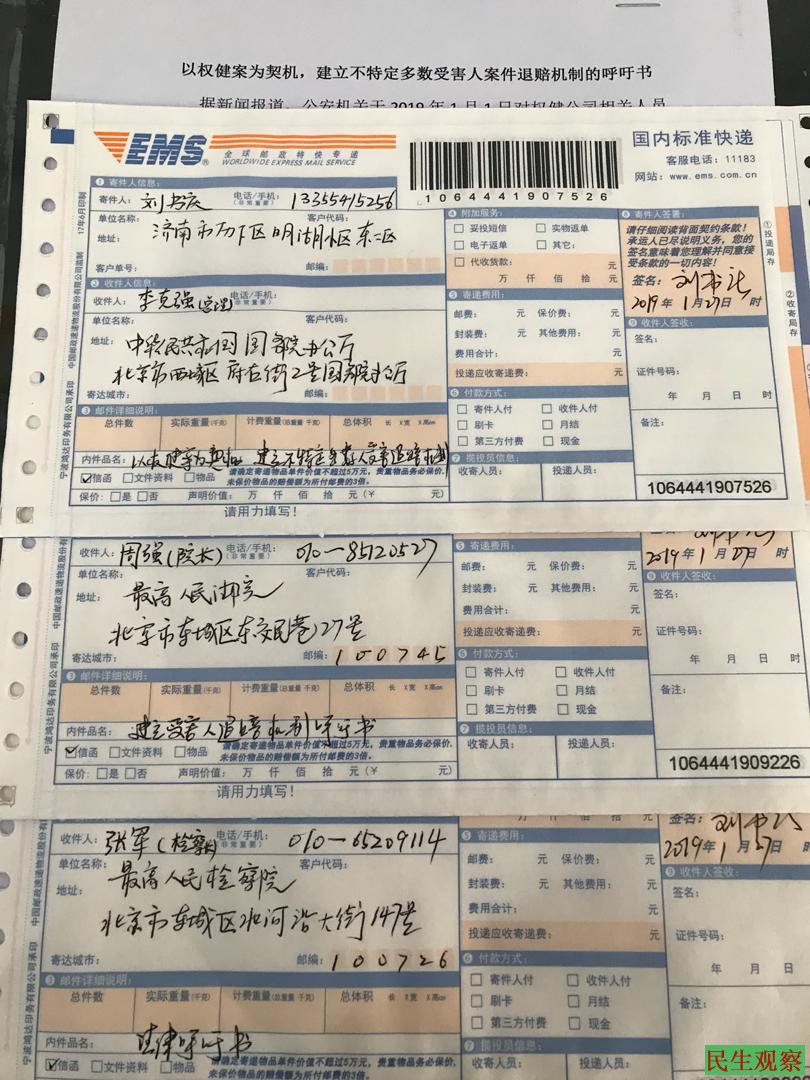 以权健案为契机，建立不特定多数受害人案件退赔机制的呼吁书
据新闻报道，公安机关于2019年1月1日对权健公司相关人员
EMS®
全球邮政特快专递
WORLDWIDE EXPRESS MAIL SERVICE
1064441907526
国内标准快递
客服电话：11183
网站：www.ems.com.cn
① 寄件人信息：
寄件人：刘书庆 电话/手机：（非常重要）13355415256
单位名称： 客户代码：
地址：济南市历下区明湖小区东二区
客户单号： 邮编：
② 收件人信息：
收件人：李克强（总理） 电话/手机：（非常重要）
单位名称： 客户代码：
地址：中华人民共和国国务院办公厅
北京市西城区府右街2号国务院办公厅
寄达城市： 邮编：
③ 邮件详细说明：
总件数 实际重量（千克） 计费重量（总重量 千克） 总体积 长 X宽 X高㎝
内件品名：以权健案为契机 建立不特定多数人受害退赔机制
☑信函 □文件资料 □物品 请确定寄递物品单件价值不超过5万元，贵重物品务必保价，
未保价物品的赔偿额为所付邮费的3倍。
保价：□是 □否 声明价值： 万 仟 佰 拾 元（¥ ）
请用力填写！
④ 附加服务：
□ 妥投短信 □ 实物返单
□ 电子返单 □ 其它：
□ 代收货款： 元
万 仟 佰 拾 元
⑤ 寄递费用：
邮费： 元 保价费： 元
封装费： 元 其他费用： 元
费用合计： 元
投递应收寄递费： 元
⑥ 付款方式：
□ 寄件人付 □ 收件人付
□ 刷卡 □ 月结
□ 第三方付费 □ 现金
⑦ 揽投员信息：
收寄人员： 投递人员：
⑧ 寄件人签署：
请仔细阅读背面契约条款！
承运人已尽说明义务，您的
签名意味着您理解并同意接
受条款的一切内容！
签名：刘书庆
2019年1月27日 时
⑨ 收件人签收：
签名：
证件号码：
年 月 日 时
备注：
1064441907526
①投递局存
②收寄局存
17年6月印制
中国邮政速递物流股份有限公司监制
宁波鸿达印务有限公司承印
收件人：周强（院长） 电话/手机：（非常重要）010-85120527
单位名称： 客户代码：
地址：最高人民法院
北京市东城区东交民巷27号
寄达城市： 邮编：100745
③ 邮件详细说明：
总件数 实际重量（千克） 计费重量（总重量 千克） 总体积 长 X宽 X高㎝
内件品名：建立受害人退赔机制呼吁书
☑信函 □文件资料 □物品 请确定寄递物品单件价值不超过5万元，贵重物品务必保价，
未保价物品的赔偿额为所付邮费的3倍。
保价：□是 □否 声明价值： 万 仟 佰 拾 元（¥ ）
请用力填写！
⑤ 寄递费用：
邮费： 元 保价费： 元
封装费： 元 其他费用： 元
费用合计： 元
投递应收寄递费： 元
⑥ 付款方式：
□ 寄件人付 □ 收件人付
□ 刷卡 □ 月结
□ 第三方付费 □ 现金
⑦ 揽投员信息：
收寄人员： 投递人员：
2019年1月27日 时
⑨ 收件人签收：
签名：
证件号码：
年 月 日 时
备注：
1064441909226
中国邮政速递物流股份有限公司
宁波鸿达印务有限公司承印
收件人：张军（检察长） 电话/手机：（非常重要）010-65209114
单位名称： 客户代码：
地址：最高人民检察院
北京市东城区北河沿大街147号
寄达城市： 邮编：100726
③ 邮件详细说明：
总件数 实际重量（千克） 计费重量（总重量 千克） 总体积 长 X宽 X高㎝
内件品名：法律呼吁书
☑信函 □文件资料 □物品 请确定寄递物品单件价值不超过5万元，贵重物品务必保价，
未保价物品的赔偿额为所付邮费的3倍。
万 仟 佰 拾 元
⑤ 寄递费用：
邮费： 元 保价费： 元
封装费： 元 其他费用： 元
费用合计： 元
投递应收寄递费： 元
⑥ 付款方式：
□ 寄件人付 □ 收件人付
□ 刷卡 □ 月结
□ 第三方付费 □ 现金
⑦ 揽投员信息：
收寄人员： 投递人员：
签名：刘书庆
2019年1月27日 时
⑨ 收件人签收：
签名：
证件号码：
年 月 日 时
备注：
中国邮政速递物流股份有限公司
宁波鸿达印务有限公司承印
民生观察